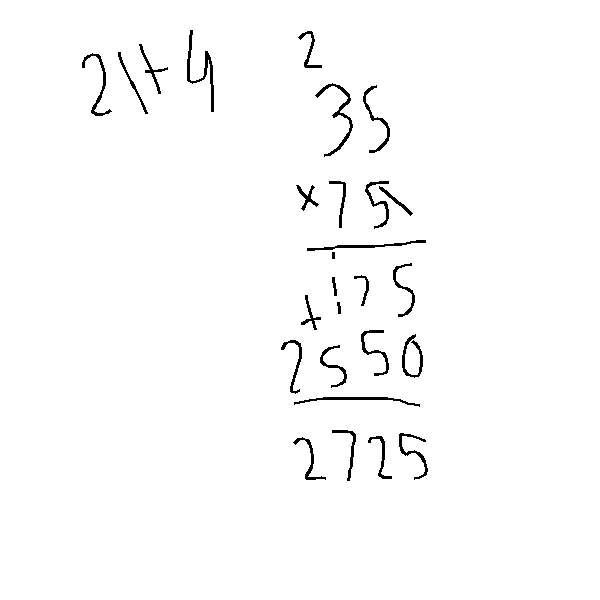 21+4
2
35
×75
175
+
2550
2725